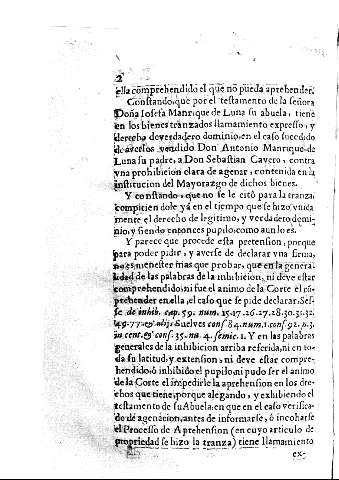 2
ella comprehendido el que no pueda aprehender.
Constando, que por el testamento de la señora
Doña Iosefa Manrique de Luna su abuela, tiene
en los bienes tranzados llamamiento expresso, y
derecho de verdadero dominio, en el caso sucedido
de averlos vendido Don Antonio Manrique de
Luna su padre, a Don Sebastian Cavero, contra
vna prohibicion clara de agenar, contenida en la
institucion del Mayorazgo de dichos bienes.
Y constando, que no se le citò para la tranza,
compitiendole yà en el tiempo que se hizo vnida
mente el derecho de legitimo, y verdadero domi-
nio, y siendo entonces pupilo, como aun lo es.
Y parece que procede esta pretension, porque
para poder pidir, y averse de declarar vna firma,
no es menester mas que probar, que en la general
lidad de las palabras de la inhibicion, ni deve estar
comprehendido, ni fue el animo de la Corte el co̅-
prehender en ella, el caso que se pide declarar, Ses-
se de inhib. cap. 59. num. 15.17.26.27.28.30.31.32.
49.77. & alij: Suelves conf 84. num. 1. conf 92. n. 3.
in cent. & conf. 35. nu. 4. semic. 1. Y en las palabras
generales de la inhibicion arriba referida, ni en to-
da su latitud, y extension, ni deve estar compre-
hendido, ò inhibido el pupilo, ni pudo ser el animo
de la Corte el impedirle la aprehension en los dre-
chos que tiene, porque alegando, y exhibiendo el
testamento de su Abuela, en que en el caso verifica-
do de agenacion, antes de informarse, ò incoharse
el Processo de Aprehension (en cuyo articulo de
propriedad se hizo la tranza) tiene llamamiento
ex-